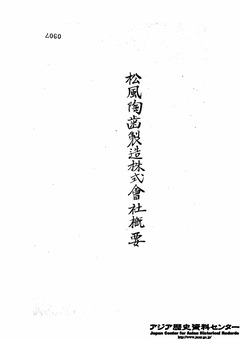 0307
松風陶歯製造株式會社概要
アジア歴史資料センター
Japan Center for Asian Historical Records
http://www.jacar.go.jp/